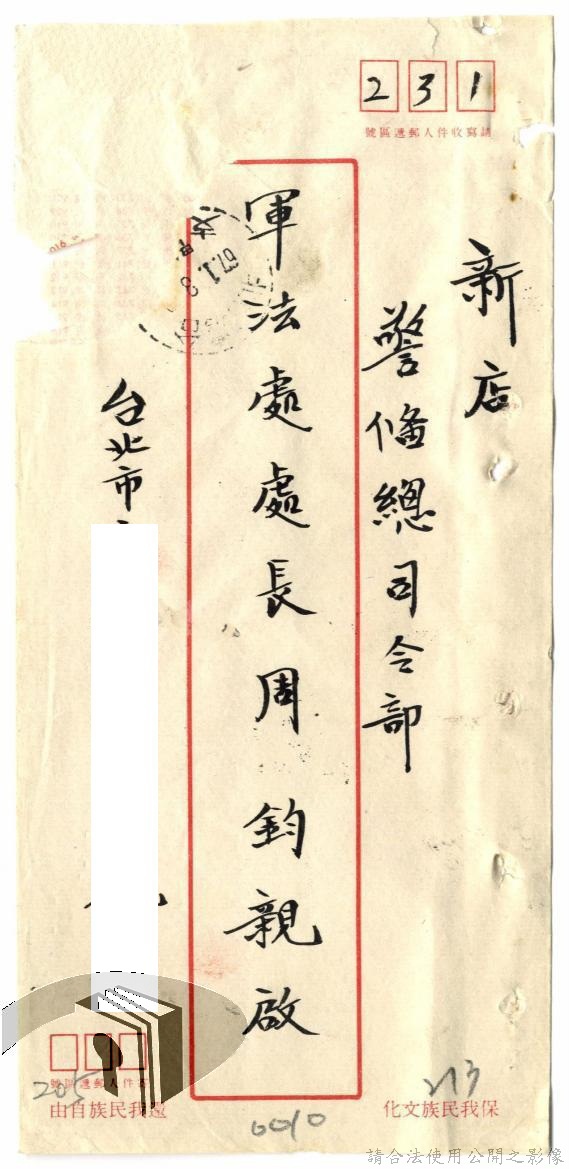 231
請寫收件人郵遞區號
新店
警俻總司令部
軍法處處長周鈞親啟
67.1.
台北市
寄件人郵遞區號
205
213
保我民族文化
還我民族自由
0010
請合法使用公開之影像